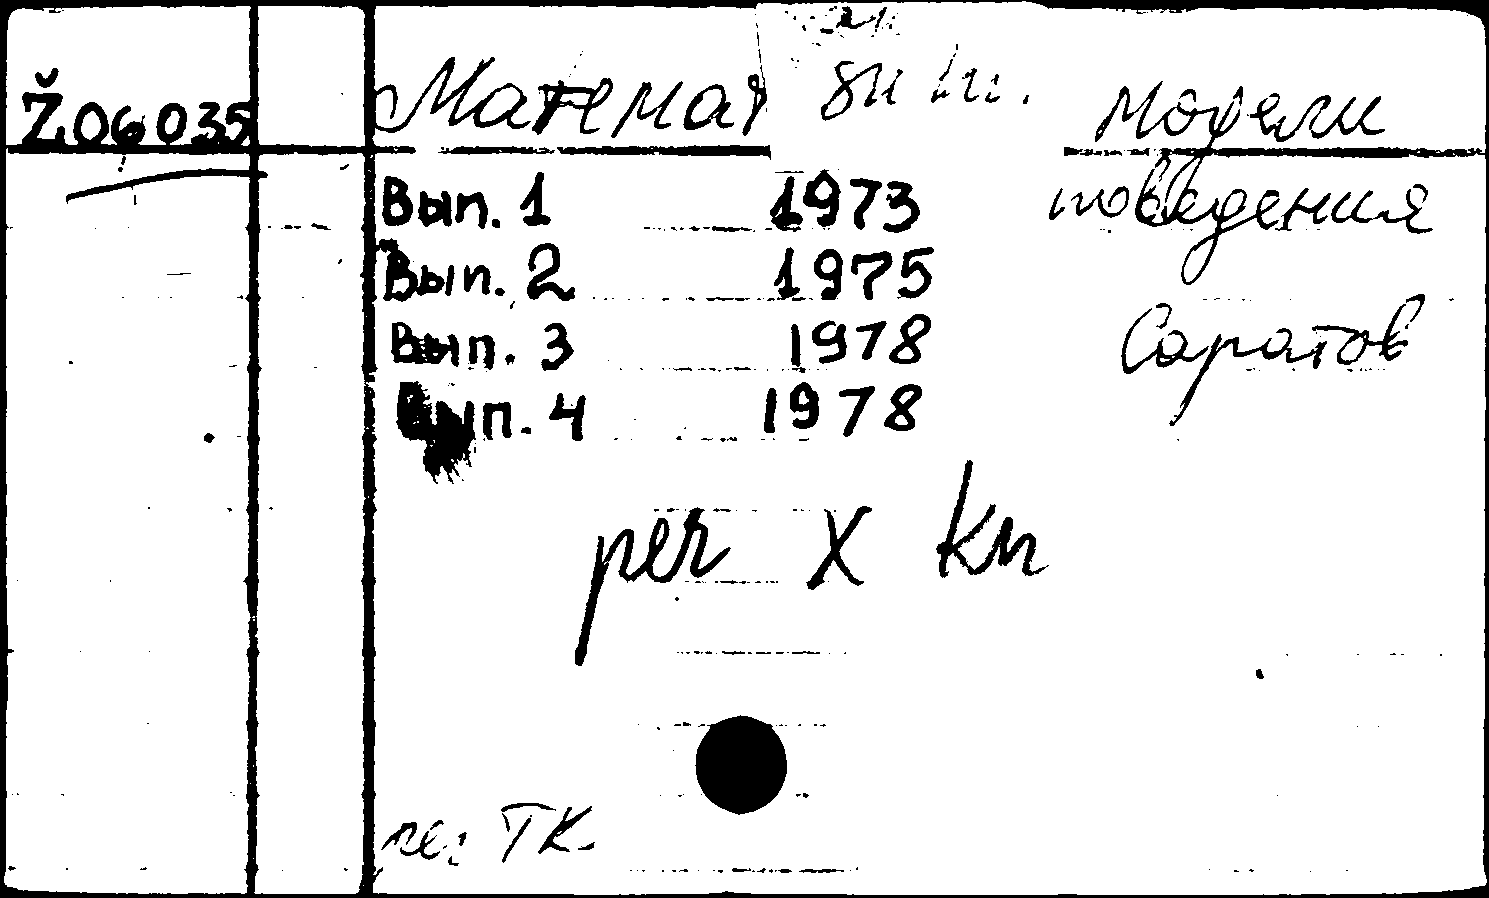 Ž06035 Математ модели
поведения
Вып. 1 1973
Вып. 2 1975
Вып. 3 1978
Саратов
Вып. 4 1978
рег X кн
рег ТК.